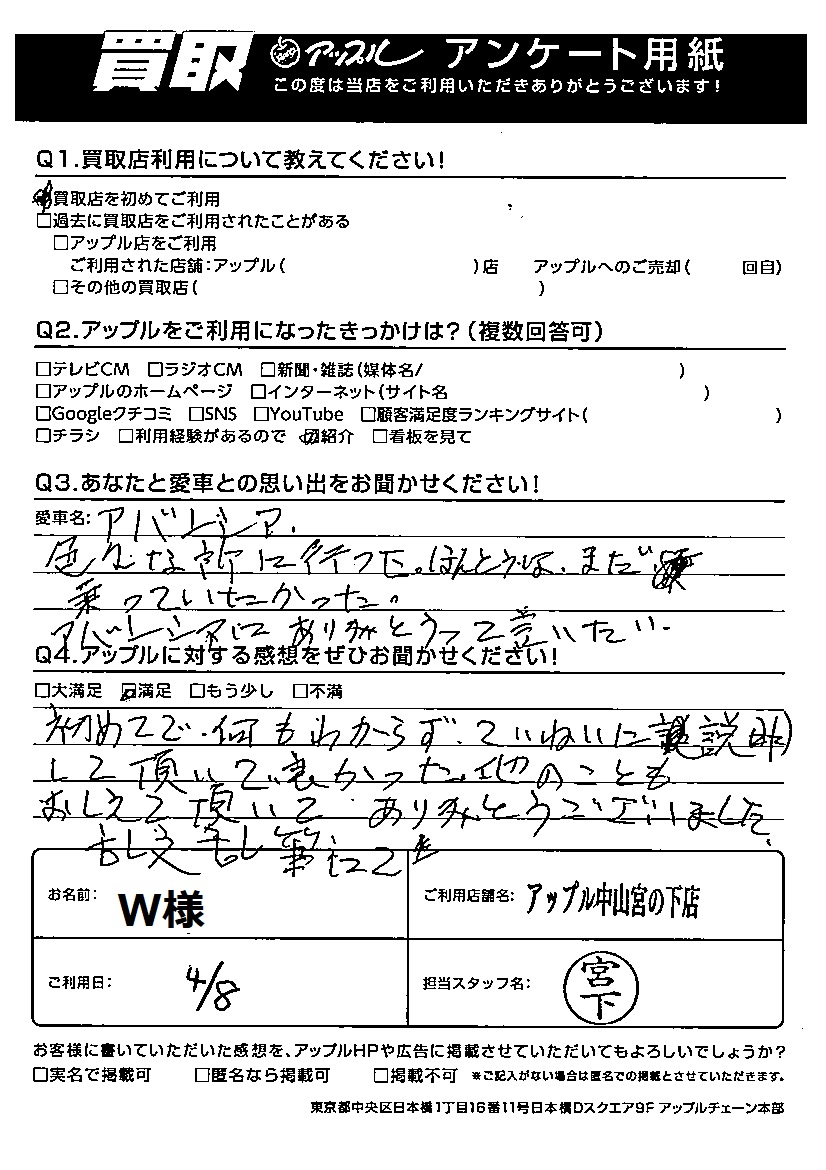 買取 アップル アンケート用紙
この度は当店をご利用いただきありがとうございます!
Q1.買取店利用について教えてください!
買取店を初めてご利用
□過去に買取店をご利用されたことがある
□アップル店をご利用
ご利用された店舗:アップル( )店 アップルへのご売却( 回目)
□その他の買取店( )
Q2.アップルをご利用になったきっかけは?(複数回答可)
□テレビCM □ラジオCM □新聞・雑誌(媒体名/ )
□アップルのホームページ □インターネット(サイト名 )
□Googleクチコミ □SNS □YouTube □顧客満足度ランキングサイト( )
□チラシ □利用経験があるので ☑紹介 □看板を見て
Q3.あなたと愛車との思い出をお聞かせください!
愛車名:アバンシア.
色んな所に行った。ほんとうは、まだ
乗っていたかった。
アバンシアに ありがとうって言いたい.
Q4.アップルに対する感想をぜひお聞かせください!
□大満足 ☑満足 □もう少し □不満
初めてで、何もわからず、ていねいに 説明
して頂いて、良かった、他のことも
おしえて頂いて ありがとうございました、
お名前: W様 ご利用店舗名: アップル中山宮の下店
ご利用日: 4/8 担当スタッフ名: 宮下
お客様に書いていただいた感想を、アップルHPや広告に掲載させていただいてもよろしいでしょうか?
□実名で掲載可 □匿名なら掲載可 □掲載不可 ※ご記入がない場合は匿名での掲載とさせていただきます。
東京都中央区日本橋1丁目16番11号日本橋Dスクエア9F アップルチェーン本部